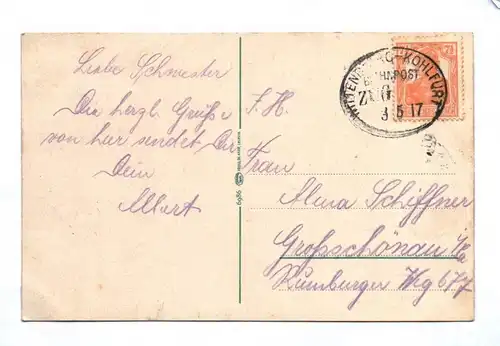 Liebe Schwester
Die herzl. Grüße
von hier sendet Dir
Dein
Albert
F. H.
Frau
Alma Schiffner
Großschönau i/Sa
Rumburger Weg 677
WITTENBERG-KOHLFURT
BAHNPOST
ZUG
3 5 17
7½
6986